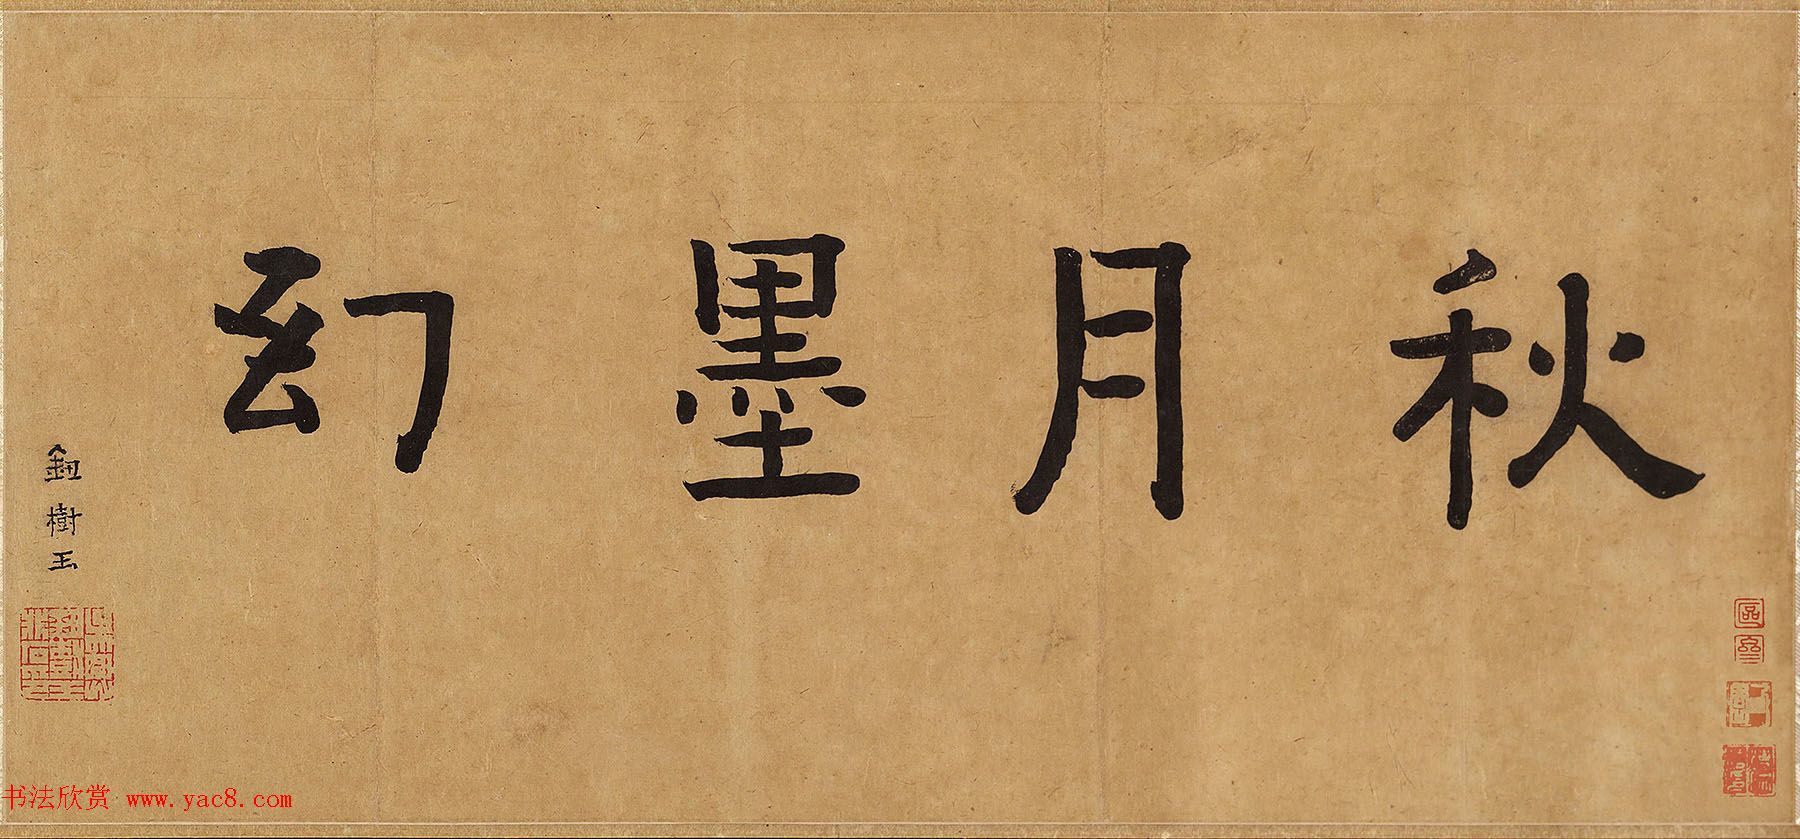 秋月墨幻
鈕樹玉
书法欣赏 www.yac8.com